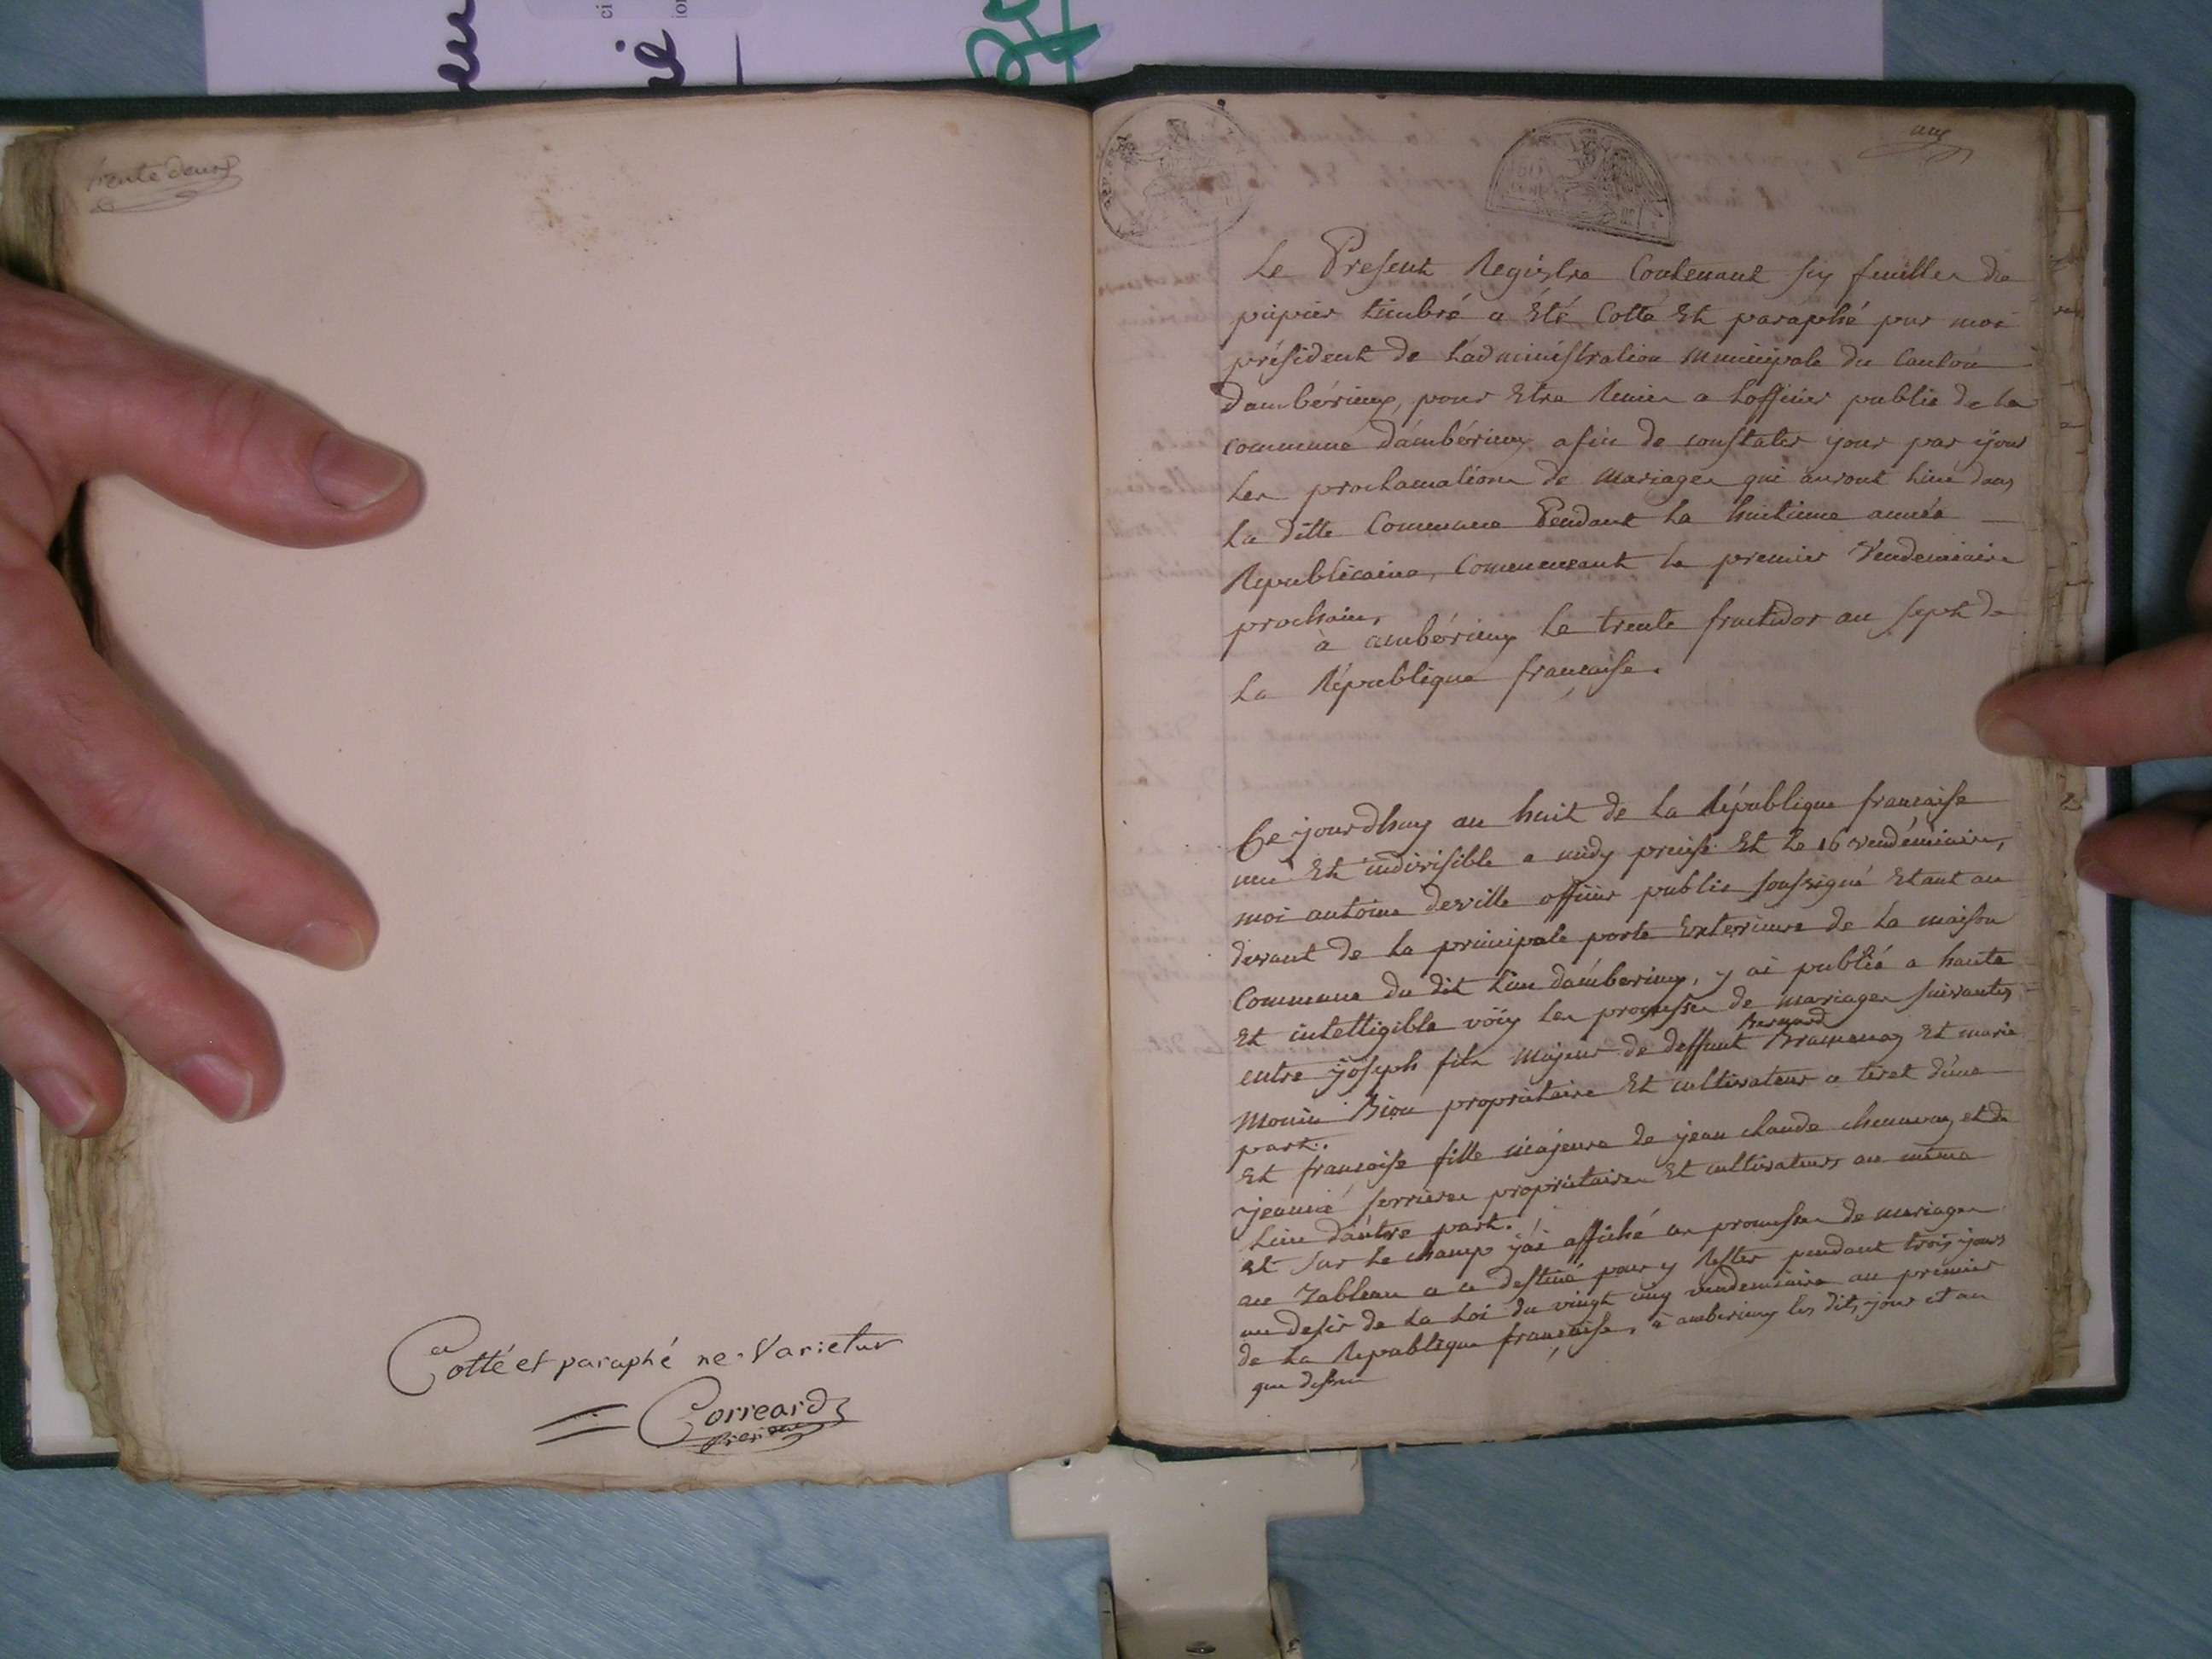 trente deux
Cotté et paraphé ne Varietur
Correard
président
une
Le Present Registre Contenant six feuilles de
papier timbré a Eté Cotté Et paraphé par moi
président de L'administration municipale du Canton
dambérieux, pour Etre Remis a Lofficier public de La
commune d'ambérieux afin de constater jour par jour
Les proclamations de mariages qui auront Lieu dans
La ditte Commune Pendant La huitieme année
Republicaine, Commencant Le premier Vendemiaire
prochain,
à ambérieux Le trente fructidor an sept de
La République francaise.
Ce jourdhuy an huit de La République francaise
une Et indivisible a midy precise Et Le 16 vendémiaire,
moi antoine deville officier public soussigné Etant au
devant de La principale porte Exterieure de La maison
Commune du dit Lieu d'amberieux, y ai publié a haute
Et intelligible voix Les promesses de mariages suivantes
entre joseph fils majeur de deffunt Bernard Et marie
propriétaire Et cultivateur a tiret d'une
part.
Et francoise fille majeure de jean claude et de
jeanne ferriere propriétaires Et cultivateurs au même
Lieu d'autre part.
et sur Le champ j'ai affiché ces promesses de mariages
au Tableau a ce destiné pour y Rester pendant trois jours
au desir de La Loi du vingt cinq vendemiaire an premier
de La Republique française, à amberieux les dits jour et an
que dessus